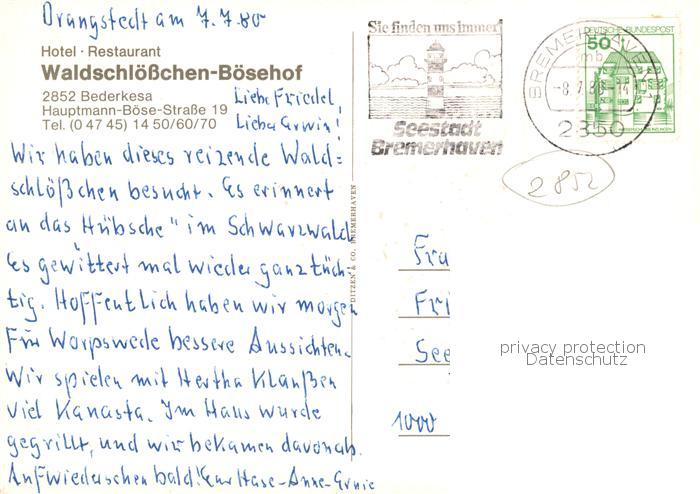 Drangstedt am 7.7.80
Hotel · Restaurant
Waldschlößchen-Bösehof
2852 Bederkesa
Hauptmann-Böse-Straße 19
Tel. (0 47 45) 14 50/60/70
Liebe Friedel,
Lieber Erwin!
Wir haben dieses reizende Wald=
schlößchen besucht. Es erinnert
an das Hübsche" im Schwarzwald
Es gewittert mal wieder ganz tüch-
tig. Hoffentlich haben wir morgen
Für Worpswede bessere Aussichten.
Wir spielen mit Hertha Klanßen
viel Kanasta. Im Haus wurde
gegrillt, und wir bekamen davon ab.
Auf Wiedersehen bald! Eure Hase-Anne-Ernie
DITZEN & CO. BREMERHAVEN
Sie finden uns immer!
Seestadt
Bremerhaven
BREMERHAVEN
mb
-8.7.80-14
2850
DEUTSCHE BUNDESPOST
50
2852
Fra
Fri
See
1000
privacy protection
Datenschutz